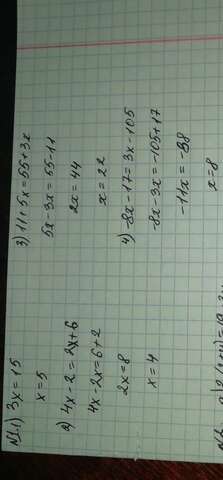 N1. 1) 3x=15
x=5
2) 4x-2=2x+6
4x-2x=6+2
2x=8
x=4
3) 11+5x=55+3x
5x-3x=55-11
2x=44
x=22
4) -8x-17=3x-105
-8x-3x=-105+17
-11x=-88
x=8